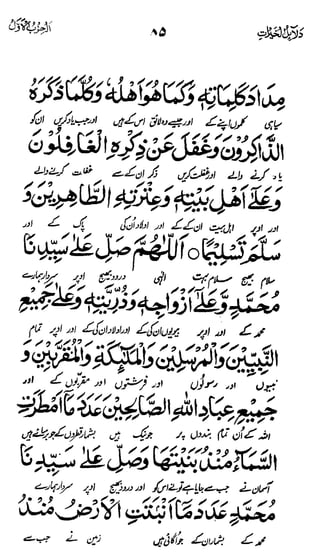 دلائل الخیرات
۸۵
الحزب الاول
مِدَادَ كَلِمَاتِهٖ وَكَمَا هُوَ اَهْلُهٗ وَكُلَّمَا ذَكَرَهُ
سیاہی کلموں اپنے کے اور جیسے وہ لائق اس کے ہیں اور جب یاد کریں ان کو
الذَّاكِرُوْنَ وَغَفَلَ عَنْ ذِكْرِهِ الْغَافِلُوْنَ
یاد کرنے والے اور غفلت کریں ذکر ان کے سے غفلت کرنے والے
وَعَلٰٓى اَهْلِ بَيْتِهٖ وَعِتْرَتِهِ الطَّاهِرِيْنَ وَ
اور اوپر اہل بیت ان کے کے اور اولاد ان کی پاک کے اور
سَلَّمَ تَسْلِيْمًا ۞ اَللّٰهُمَّ صَلِّ عَلٰى سَيِّدِنَا
سلام بھیج سلام بہت الٰہی درود بھیج اوپر سردار ہمارے
مُحَمَّدٍ وَّعَلٰٓى اَزْوَاجِهٖ وَذُرِّيَّتِهٖ وَعَلٰى جَمِيْعِ
محمد کے اور اوپر بیویوں ان کی کے اور اولاد ان کی کے اور اوپر تمام
النَّبِيِّيْنَ وَالْمُرْسَلِيْنَ وَالْمَلٰٓئِكَةِ وَالْمُقَرَّبِيْنَ وَ
نبیوں اور رسولوں اور فرشتوں اور مقربوں کے اور
جَمِيْعِ عِبَادِ اللّٰهِ الصَّالِحِيْنَ عَدَدَ مَآ اَمْطَرَتِ
اللہ کے ان تمام بندوں پر جو نیک ہیں بشمار قطروں کے جو برسائے ہیں
السَّمَآءُ مُنْذُ بَنَيْتَهَا وَصَلِّ عَلٰى سَيِّدِنَا
آسمان نے جب سے بنایا ہے تو نے اس کو اور درود بھیج اوپر سردار ہمارے
مُحَمَّدٍ عَدَدَ مَآ اَنْبَتَتِ الْاَرْضُ مُنْذُ
محمد کے بشمار ان کے جو اگائی ہیں زمین نے جب سے